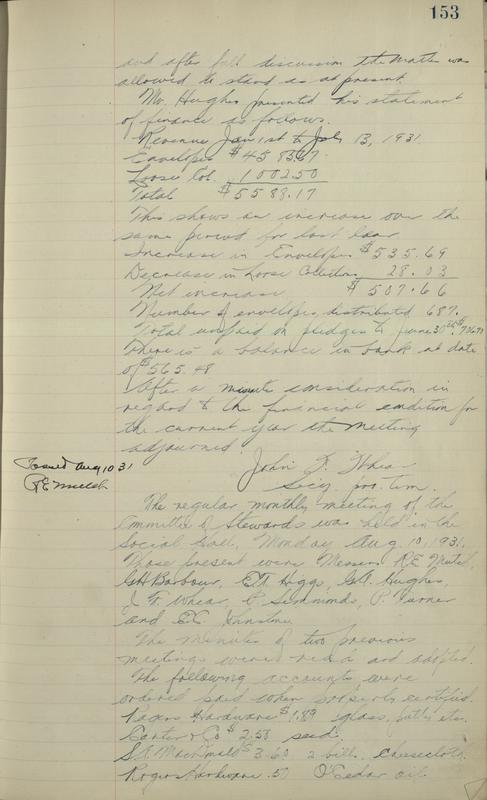 153
and after full discussion the matter was
allowed to stand as at present
Mr. Hughes presented his statement
of finance as follows.
Revenue Jan 1st to July 13, 1931
Envelopes $4585.67
Loose Col. 1002.50
Total $5588.17
This shows an increase over the
same period for last year
Increase in Envelopes $535.69
Decrease in Loose Collections 28.03
Net increase $507.66
Number of envelopes distributed 687.
Total unpaid on pledges to June 30th
There is a balance in bank at date
of $565.48
After a minute consideration in
regard to the financial condition for
the current year the meeting
adjourned.
Aug 10 31
John F. Whear
Secy. pro. tem.
The regular monthly meeting of the
Committee of Stewards was held in the
Social Hall, Monday Aug 10, 1931.
Those present were Messrs R.E. Mutch,
GH Barbour, Higgs, Hughes,
J F. Whear, P. Simmonds, P. Turner
and
The minutes of two previous
meetings were read and adopted.
The following accounts were
ordered paid when properly certified.
Rogers Hardware $1.89 glass, putty etc.
Carter & Co $2.58 seed.
MacDonald $3.60 2 bills. Cheesecloth.
Rogers Hardware .50 O'Cedar oil.